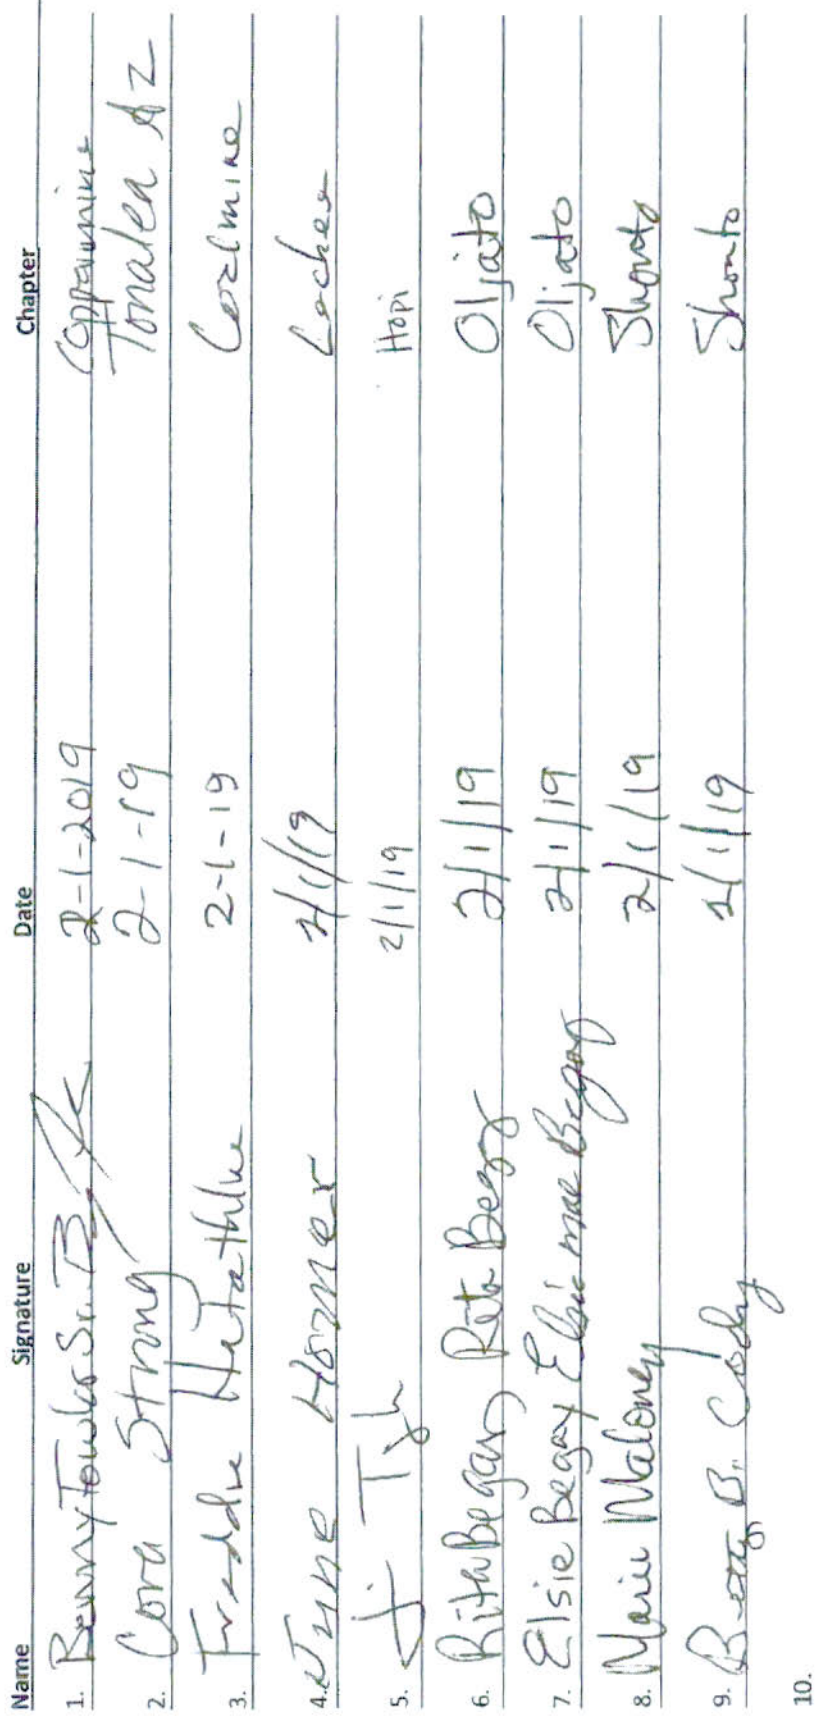 Name Signature Date Chapter
1. Benny Towker Sr. 2-1-2019 Coppermine
2. Cora Strong 2-1-19 Tonalea AZ
3. Freddie Hatathlie 2-1-19 Coalmine
4. June Horner 2/1/19 Lechee
5. 2/1/19 Hopi
6. Rita Begay Rita Begay 2/1/19 Oljato
7. Elsie Begay Elsie mae Begay 2/1/19 Oljato
8. Marie Maloney 2/1/19 Shonto
9. Betty B. Cody 2/1/19 Shonto
10.